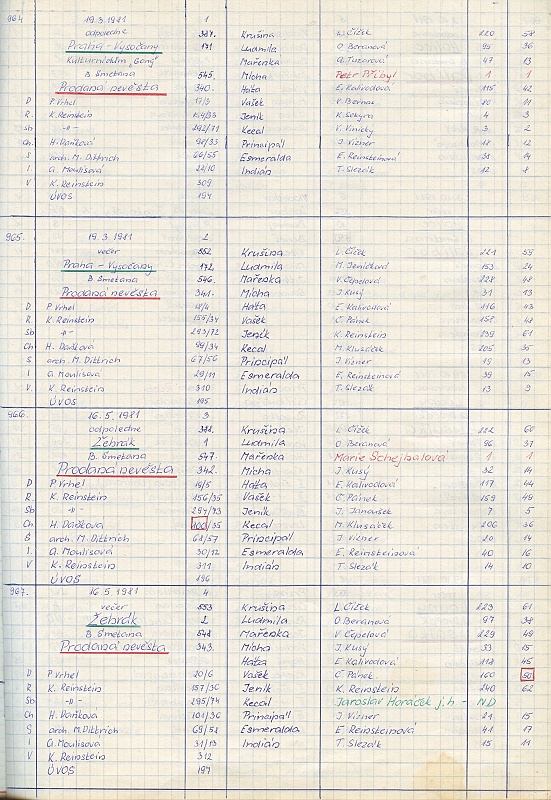 964. 19.3 1981 1
odpoledne 387. Krušina L. Čížek 220 58
Praha - Vysočany 171 Ludmila O Beranová 95 36
Kulturní dům "Gong" Mařenka A. Tuzarová 47 13
B. Smetana 545. Mícha Petr Přibyl 1 1
Prodaná nevěsta 340. Háta E. Kalivodová 115 42
D P Vrhel 17/3 Vašek V. Bernar 20 11
R. K. Reinstein Jeník K. Sekyra 4 3
Sb -"- 292/71 Kecal V. Vinický 3 2
Ch. H. Daňková 98/33 Principál J. Vízner 18 12
S arch. M. Dittrich 66/55 Esmeralda E. Reinsteinová 38 14
I G. Moulisová 28/10 Indián T. Slezák 12 8
V K. Reinstein 309
ÚVOS 194
965. 19.3 1981 2
večer 552 Krušina L. Čížek 221 59
Praha - Vysočany 172 Ludmila M. Jeníčková 153 24
B Smetana 546. Mařenka V. Čepelová 228 48
Prodaná nevěsta 341. Mícha J. Kusý 31 13
D P Vrhel 18/4 Háta E Kalivodová 116 43
R. K. Reinstein 155/34 Vašek Č. Pánek 158 48
Sb -"- 293/72 Jeník K. Reinstein 239 61
Ch H. Daňková 99/34 Kecal M. Klusáček 205 35
S arch. M. Dittrich 67/56 Principál J. Vízner 19 13
I G. Moulisová 29/11 Esmeralda E. Reinsteinová 39 15
V. K. Reinstein 310 Indián T. Slezák 13 9
ÚVOS 195
966. 16.5. 1981 3
odpoledne 388. Krušina L. Čížek 222 60
Žebrák 1 Ludmila O. Beranová 96 37
B. Smetana 547. Mařenka Marie Schejbalová 1 1
Prodaná nevěsta 342. Mícha J. Kusý 32 14
D P Vrhel 19/5 Háta E. Kalivodová 117 44
R. K. Reinstein 156/35 Vašek Č. Pánek 159 49
Sb -"- 294/73 Jeník J. Janoušek 7 5
Ch. H. Daňková 100/35 Kecal M. Klusáček 206 36
S arch. M. Dittrich 68/57 Principál J. Vízner 20 14
I. G. Moulisová 30/12 Esmeralda E. Reinsteinová 40 16
V K. Reinstein 311 Indián T. Slezák 14 10
ÚVOS 196
967. 16.5 1981 4
večer 553 Krušina L. Čížek 223 61
Žebrák 2 Ludmila O Beranová 97 38
B. Smetana 548 Mařenka V. Čepelová 229 49
Prodaná nevěsta 343. Mícha J. Kusý 33 15
Háta E Kalivodová 118 45
D P Vrhel 20/6 Vašek Č. Pánek 160 50
R K. Reinstein 157/36 Jeník K. Reinstein 240 62
Sb -"- 295/74 Kecal Jaroslav Horáček j.h - ND
Ch H. Daňková 101/36 Principál J. Vízner 21 15
S arch. M. Dittrich 69/58 Esmeralda E Reinsteinová 41 17
I G. Moulisová 31/13 Indián T. Slezák 15 11
V K. Reinstein 312
ÚVOS 197